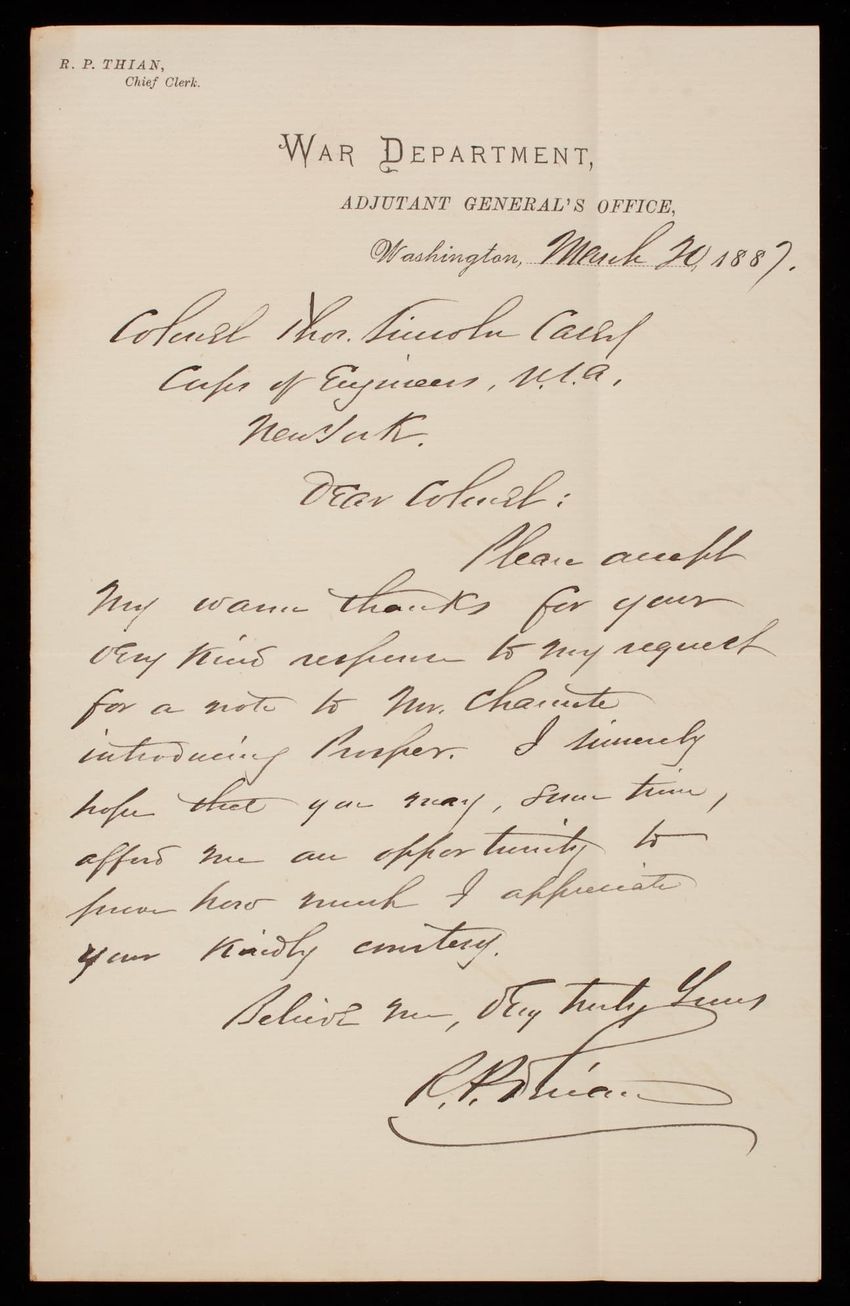 R. P. THIAN,
Chief Clerk.
WAR DEPARTMENT,
ADJUTANT GENERAL'S OFFICE,
Washington, March 20, 1887.
Colonel Thos. Lincoln Casey
Corps of Engineers, U.S.A.
New York.
Dear Colonel:
Please accept
my warm thanks for your
very kind response to my request
for a note to Mr. Chanute
introducing Prosper. I sincerely
hope that you may, some time,
afford me an opportunity to
prove how much I appreciate
your kindly courtesy.
Believe me, very truly yours
R. P. Thian